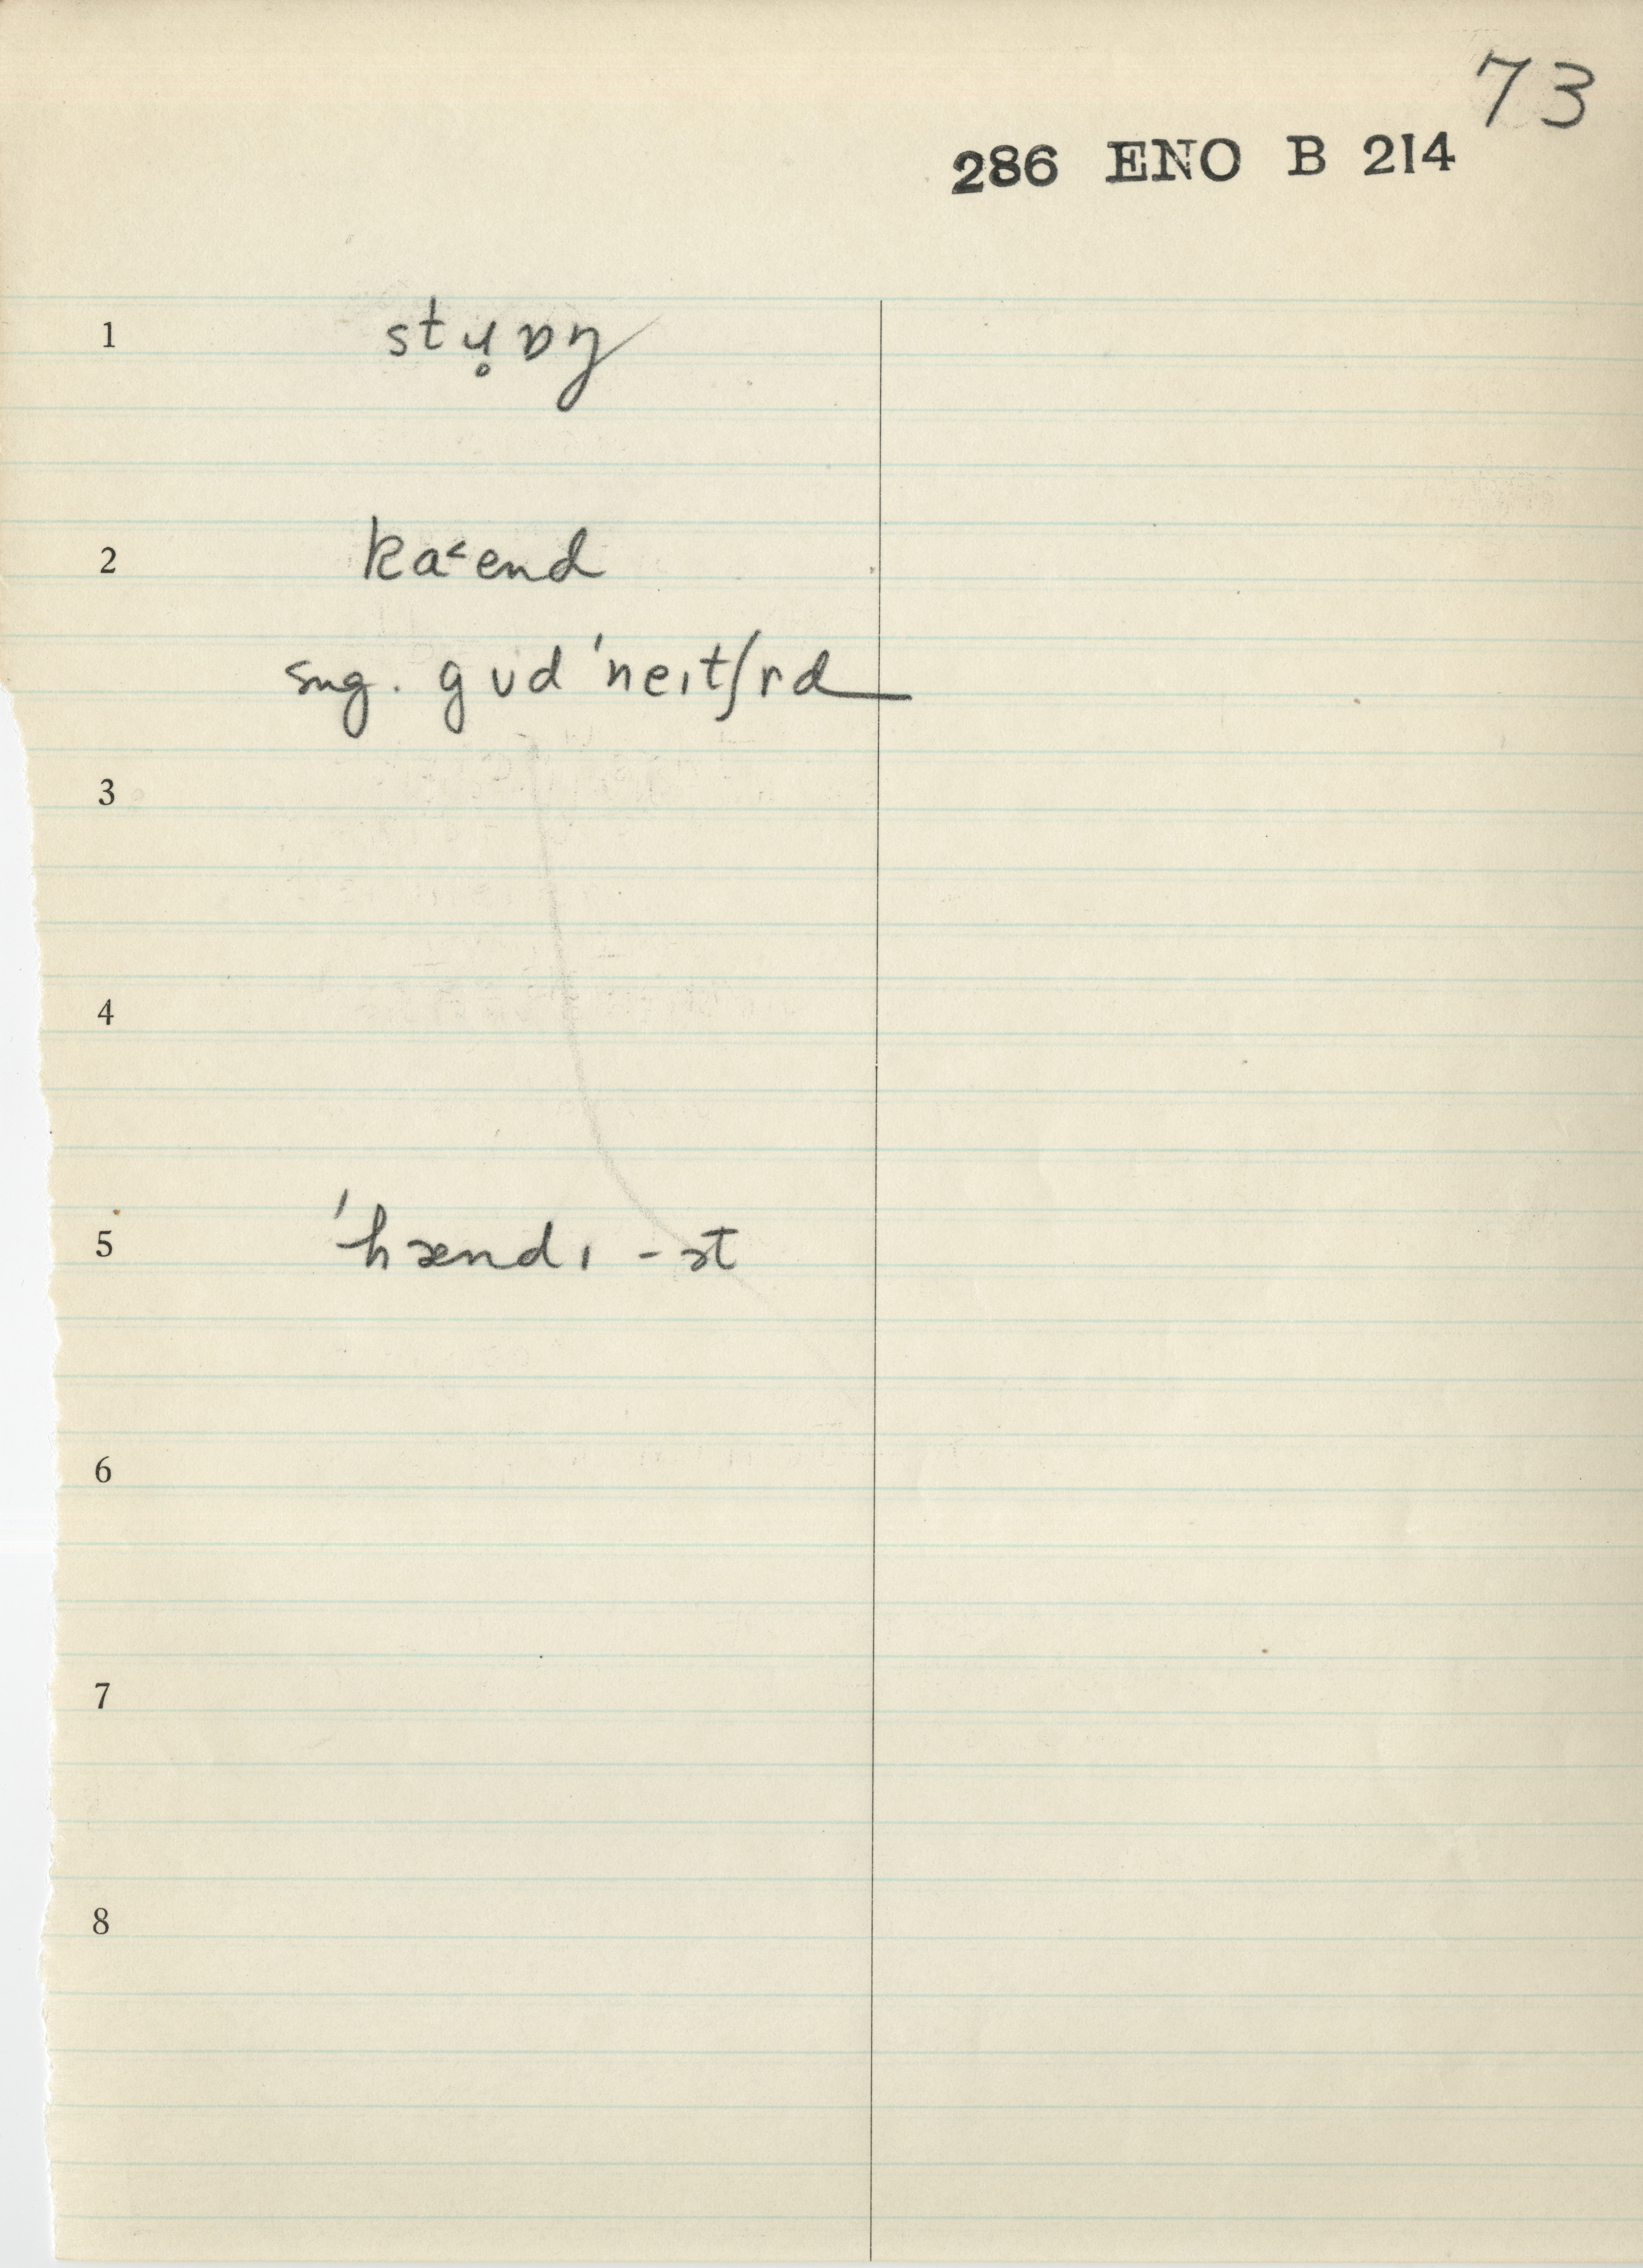 73
286 ENO B 214
1 stɹ̥ɒŋ
2 ka˂end
sug. gʊd ˈneɪtʃɚd
3
4
5 ˈhændɪ -ɪst
6
7
8